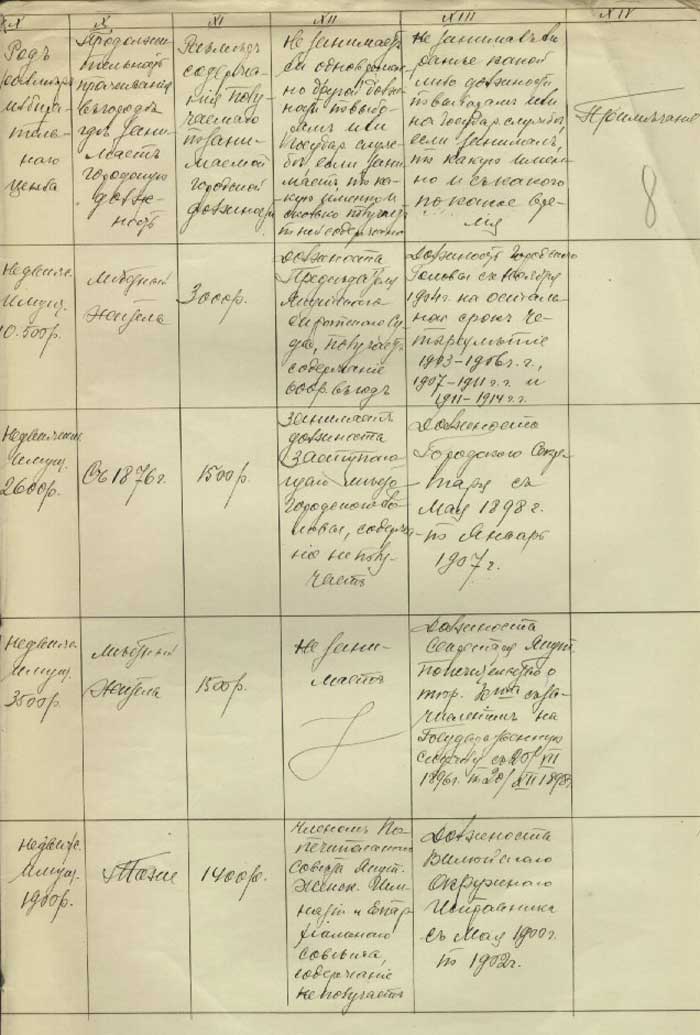 X
XI
XII
XIII
XIV
Родъ
избира-
тель-
наго
ценза
Продолжи-
тельность
проживанія
въ городѣ
гдѣ зани-
маетъ
городскую
долж-
ность
Размѣръ
содержа-
нія полу-
чаемаго
по зани-
маемой
городской
должности
Не занимаетъ
ли одновремен-
но другой долж-
ности по выбо-
рамъ или
государ. служ-
бѣ если зани-
маетъ, то ка-
кую именно и
сколько получаетъ
по ней содержанія
Не занималъ ли
ранѣе какой
либо должности
по выборамъ или
на государ. службѣ,
если занималъ,
то какую имен-
но и съ какого
по какое вре-
мя
Примѣчаніе
8
Недвиж.
Имущ.
10.500р.
Мѣстный
Житель
3000р.
должность
Предсѣдателя
Якутскаго
Сиротскаго Су-
да, получаетъ
содержаніе
600р. въ годъ
Должность Городского
Головы съ Ноября
1904г. на остальн-
ной срокъ че-
тырехлѣтіе
1903-1906г.г.,
1907-1911г.г. и
1911-1914г.г.
Недвижим.
Имущ.
2600р.
Съ 1876г.
1500р.
Занимаетъ
должность
Заступаю-
щаго мѣсто
Городского Го-
ловы, содержа-
нія не полу-
чаетъ
Должность
Городского Секре-
таря съ
Мая 1898г.
по Январь
1907г.
Недвиж.
Имущ.
3500р.
Мѣстный
Житель
1500р.
Не зани-
маетъ
Должность
Секретаря Якут.
попечительства о
тюр. съ за-
численіемъ на
Государственную
службу съ 20/VII
1896г. по 20/XII 1898г.
Недвиж.
Имущ.
1900р.
Тоже
1400р.
Членомъ По-
печительнаго
Совѣта Якут.
Женск. Гим-
назіи и Епар-
хіальнаго
совѣта,
содержаніе
не получаетъ
Должность
Вилюйскаго
Окружнаго
Исправника
съ Мая 1900г.
по 1902г.